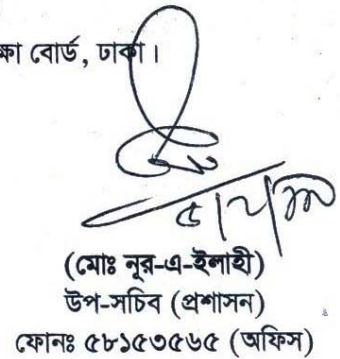 ক্ষা বোর্ড, ঢাকা।
(মোঃ নূর-এ-ইলাহী)
উপ-সচিব (প্রশাসন)
ফোনঃ ৫৮১৫৩৫৬৫ (অফিস)